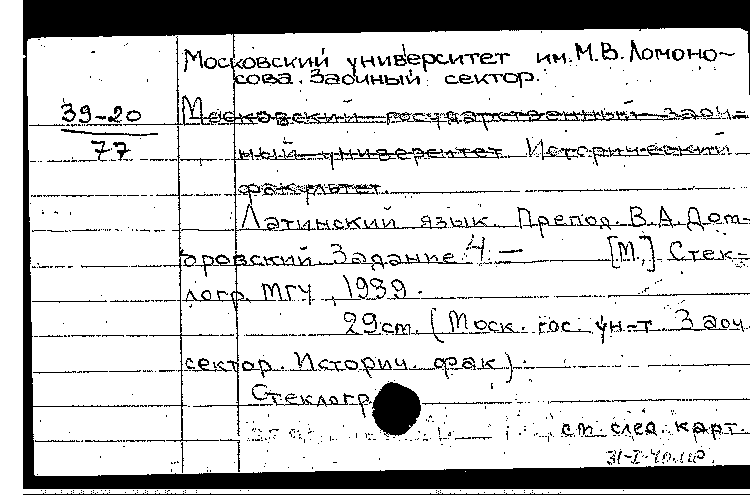 Московский университет им. М.В. Ломоно-
сова. Заочный сектор.
39-20
77
Московский государственный заоч-
ный университет Исторический
факультет.
Латинский язык. Препод. В.А. Дом-
бровский. Задание 4. — [М.,] Стек-
логр. МГУ, 1939.
29 см. (Моск. гос. ун-т. Заоч.
сектор. Историч. фак).
Стеклогр
см. след. карт.